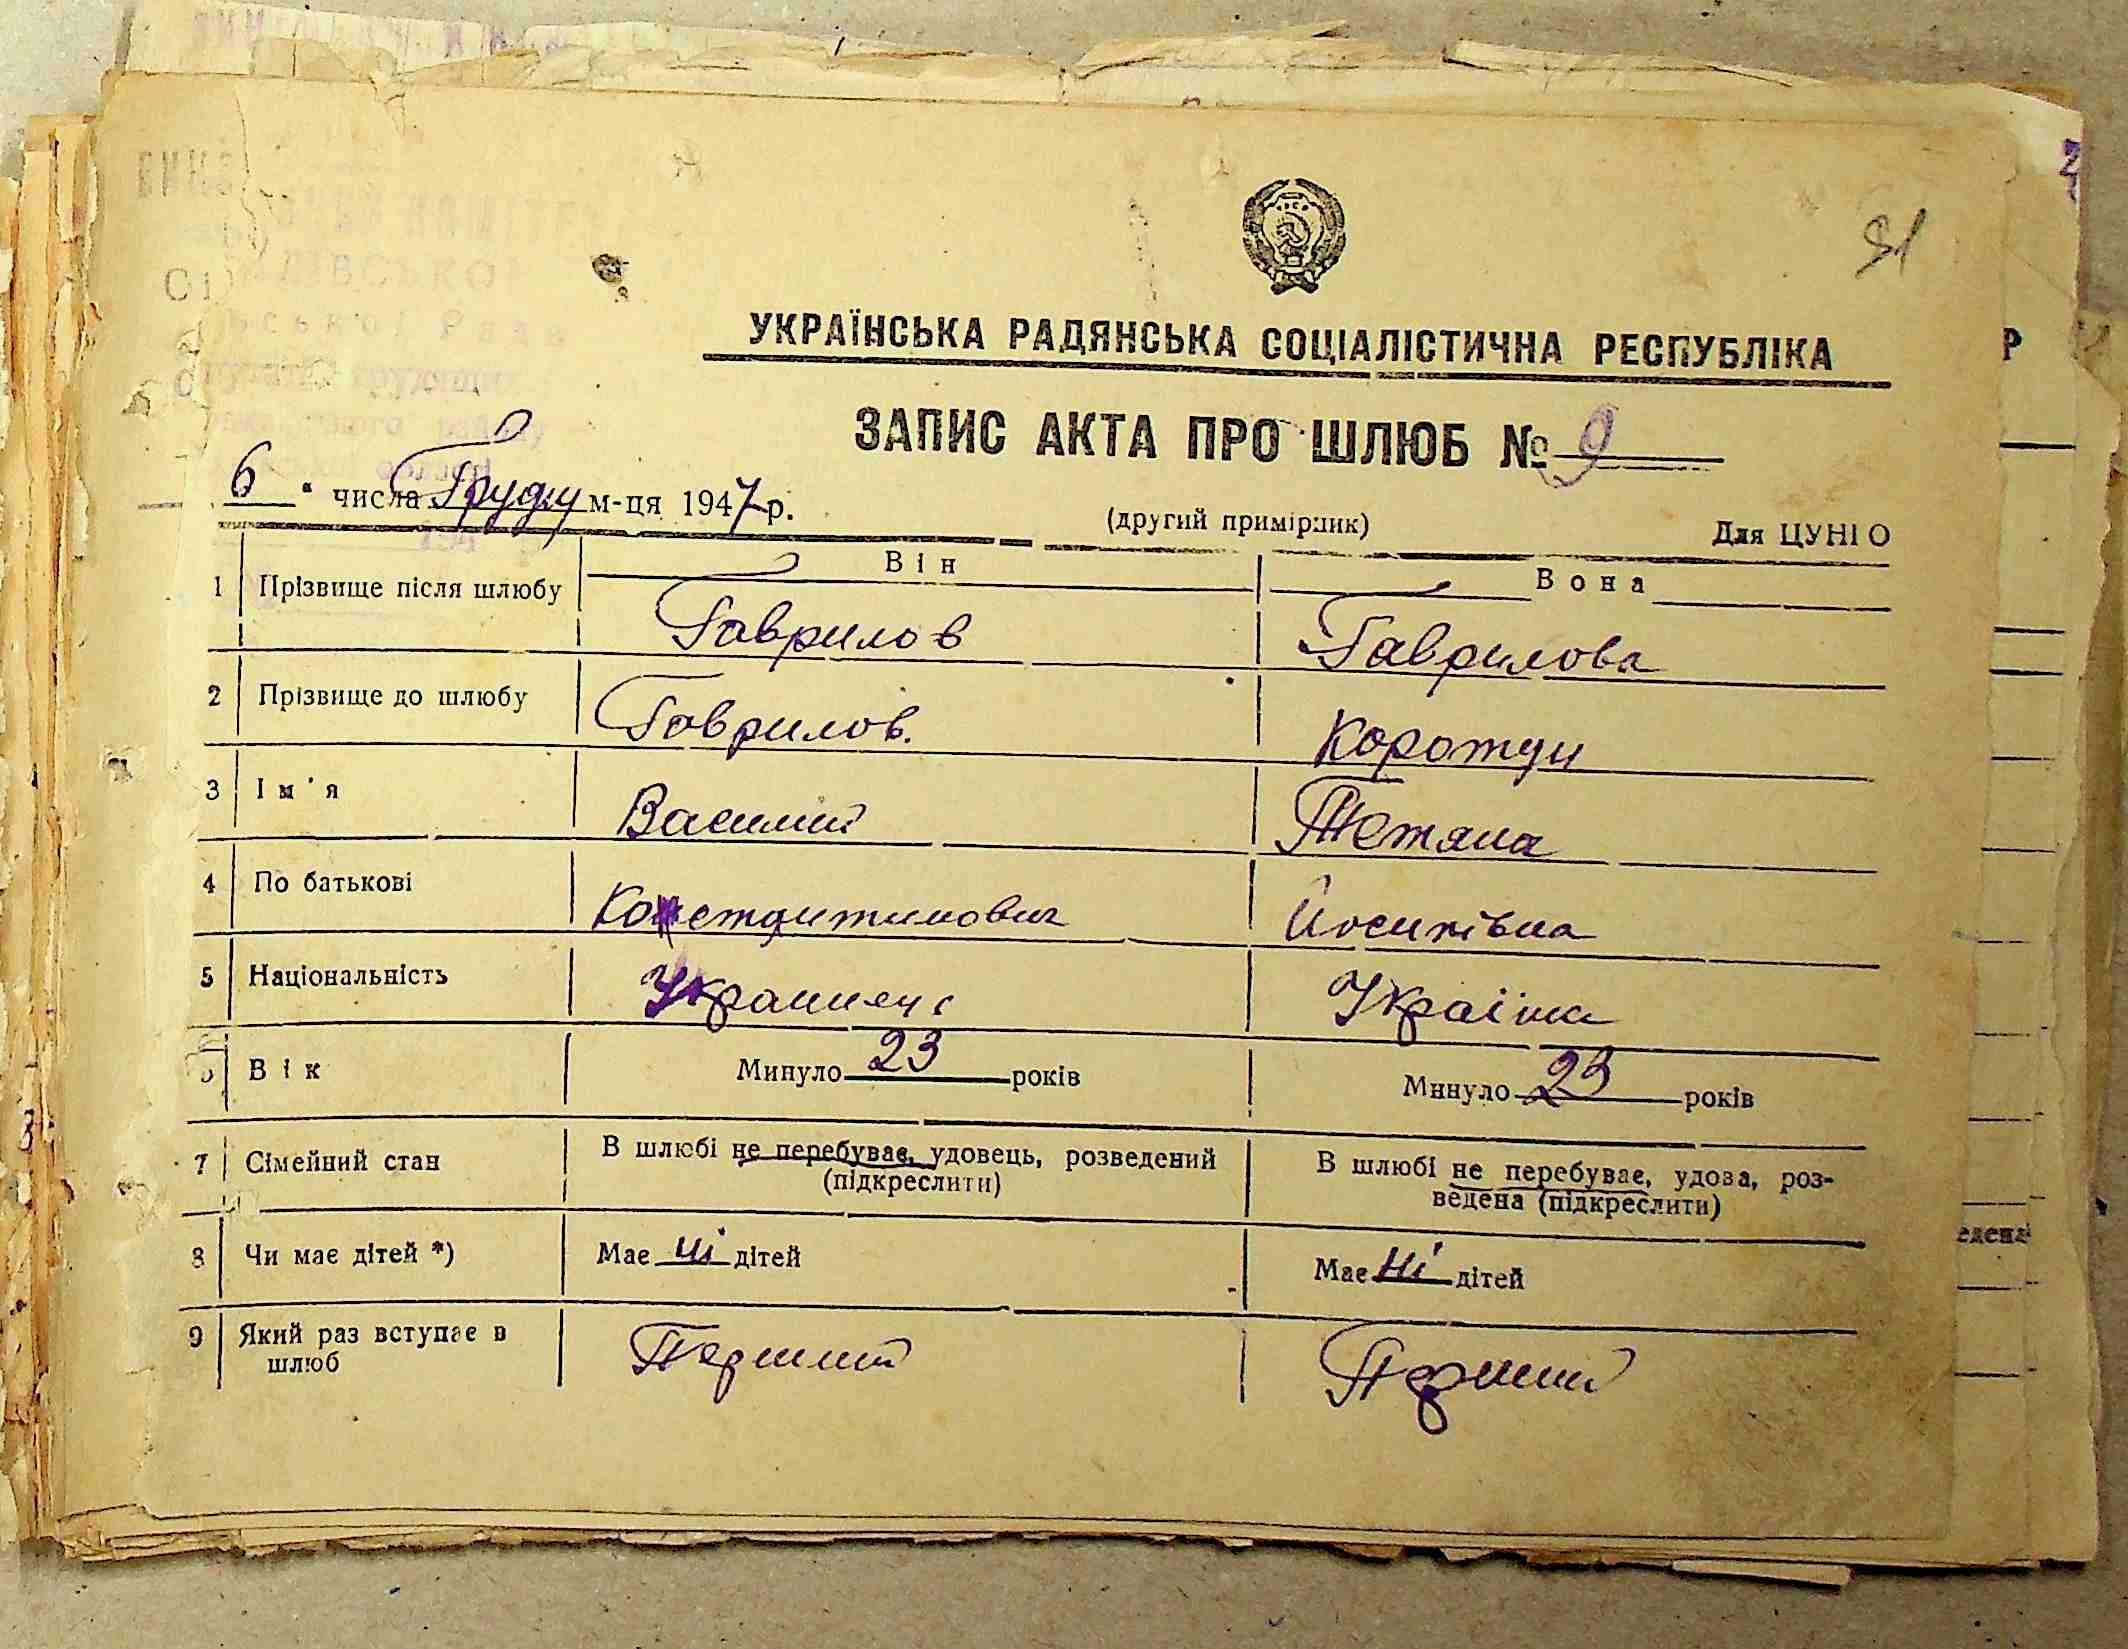 81
УКРАЇНСЬКА РАДЯНСЬКА СОЦІАЛІСТИЧНА РЕСПУБЛІКА
ЗАПИС АКТА ПРО ШЛЮБ № 9
6 " числа Грудну м-ця 1947 р.
(другий примірник)
Для ЦУНІО
Він
Вона
1 Прізвище після шлюбу Гаврилов Гаврилова
2 Прізвище до шлюбу Гаврилов. Коротун
3 Ім'я Василий Тетяна
4 По батькові Константинович Йосипівна
5 Національність Украинец Україїнка
В і к Минуло 23 років Минуло 23 років
7 Сімейний стан В шлюбі не перебуває, удовець, розведений (підкреслити)
В шлюбі не перебуває, удова, роз-
ведена (підкреслити)
8 Чи має дітей *) Має ні дітей Має ні дітей
9 Який раз вступає в шлюб Перший Перший